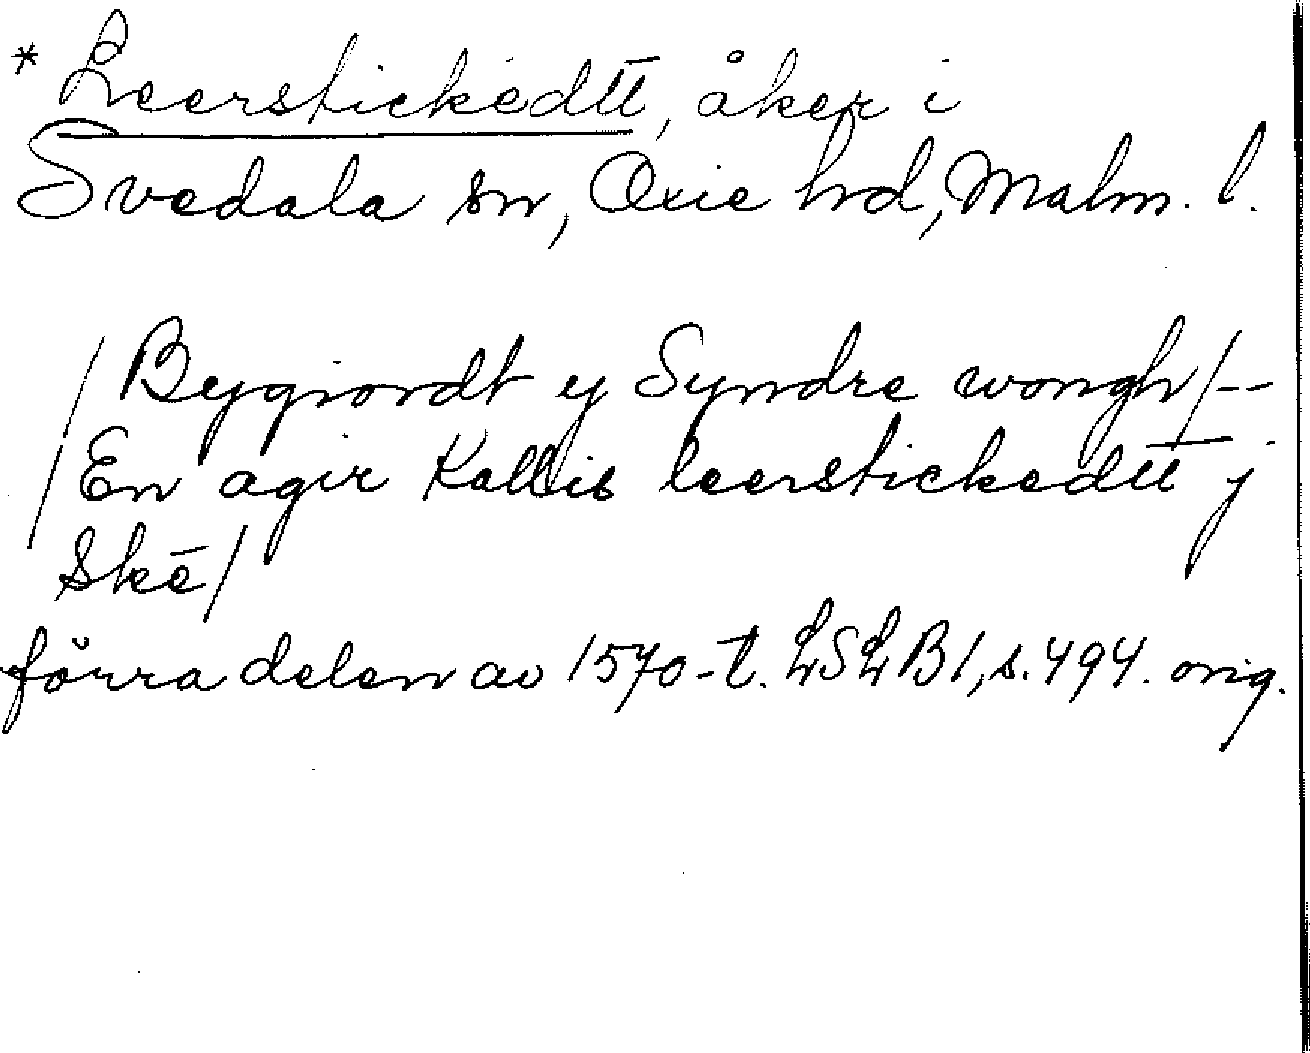 * Leerstickedtt, åker i
Svedala sn, Oxie hrd, Malm. l.
/Bygiordt ij Syndre wongh/--
/En agir Kallis leerstickedtt j
Skē/
förra delen av 1570-t. LSLB1, s. 494. orig.